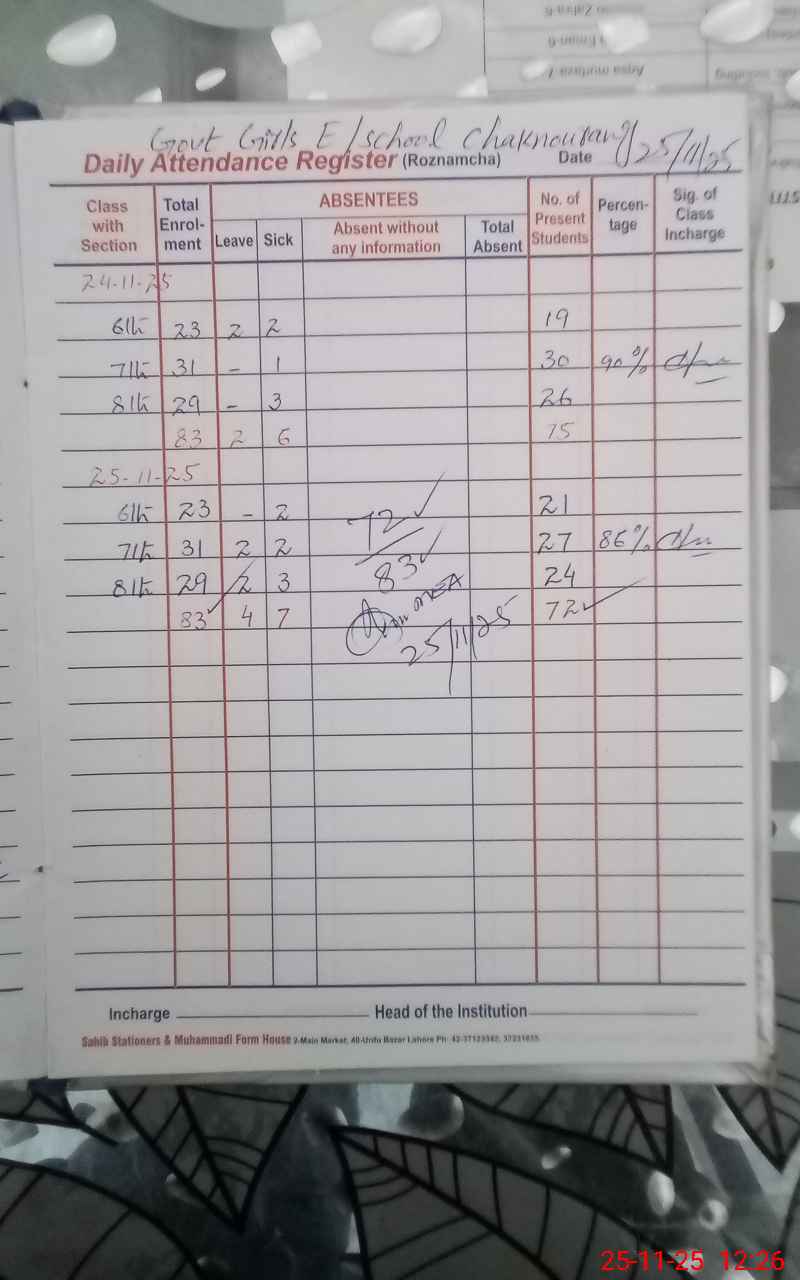 Govt Girls E/school Chaknourang
Daily Attendance Register (Roznamcha) Date 25/11/25
Class with Section
Total Enrol-ment
ABSENTEES
Leave Sick Absent without any information Total Absent
No. of Present Students
Percen-tage
Sig. of Class Incharge
24-11-25
6th 23 2 2 19
7th 31 - 1 30 90%
8th 29 - 3 26
83 2 6 75
25-11-25
6th 23 - 2 21
72
7th 31 2 2 27 86%
83
8th 29 2 3 24
83 4 7 72
25/11/25
Incharge Head of the Institution
Sahib Stationers & Muhammadi Form House 2-Main Market, 40-Urdu Bazar Lahore Ph:
25-11-25 12:26